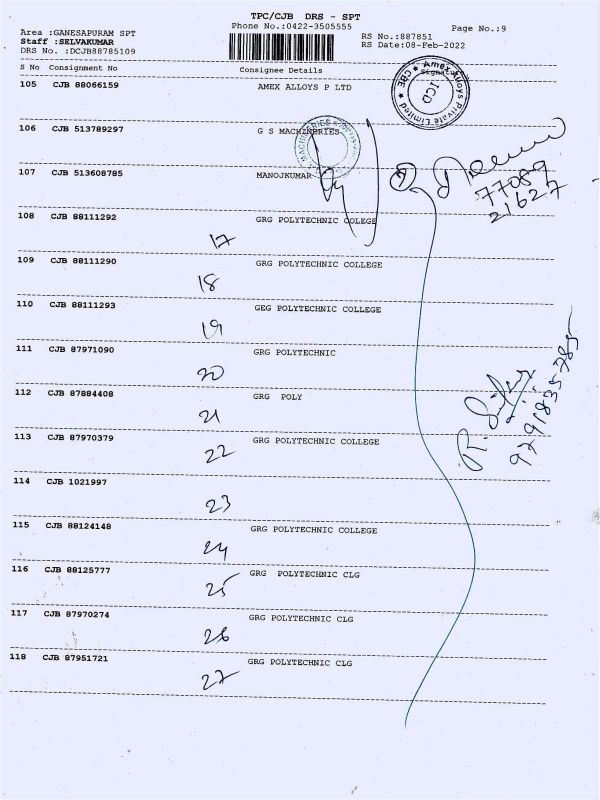 TPC/CJB DRS - SPT
Area :GANESAPURAM SPT
Phone No.:0422-3505555
Page No.:9
Staff :SELVAKUMAR
RS No.:887851
DRS No. :DCJB88785109
RS Date:08-Feb-2022
S No Consignment No Consignee Details Signature
105 CJB 88066159 AMEX ALLOYS P LTD
Amex Alloys Private Limited ★ CBE ★
ICD
106 CJB 513789297 G S MACHINERIES
MACHINERIES
107 CJB 513608785 MANOJKUMAR
77089
21627
108 CJB 88111292 GRG POLYTECHNIC COLEGE
17
109 CJB 88111290 GRG POLYTECHNIC COLLEGE
18
110 CJB 88111293 GEG POLYTECHNIC COLLEGE
19
111 CJB 87971090 GRG POLYTECHNIC
20
112 CJB 87884408 GRG POLY
21
9791835785
113 CJB 87970379 GRG POLYTECHNIC COLLEGE
22
114 CJB 1021997
23
115 CJB 88124148 GRG POLYTECHNIC COLLEGE
24
116 CJB 88125777 GRG POLYTECHNIC CLG
25
117 CJB 87970274 GRG POLYTECHNIC CLG
26
118 CJB 87951721 GRG POLYTECHNIC CLG
27